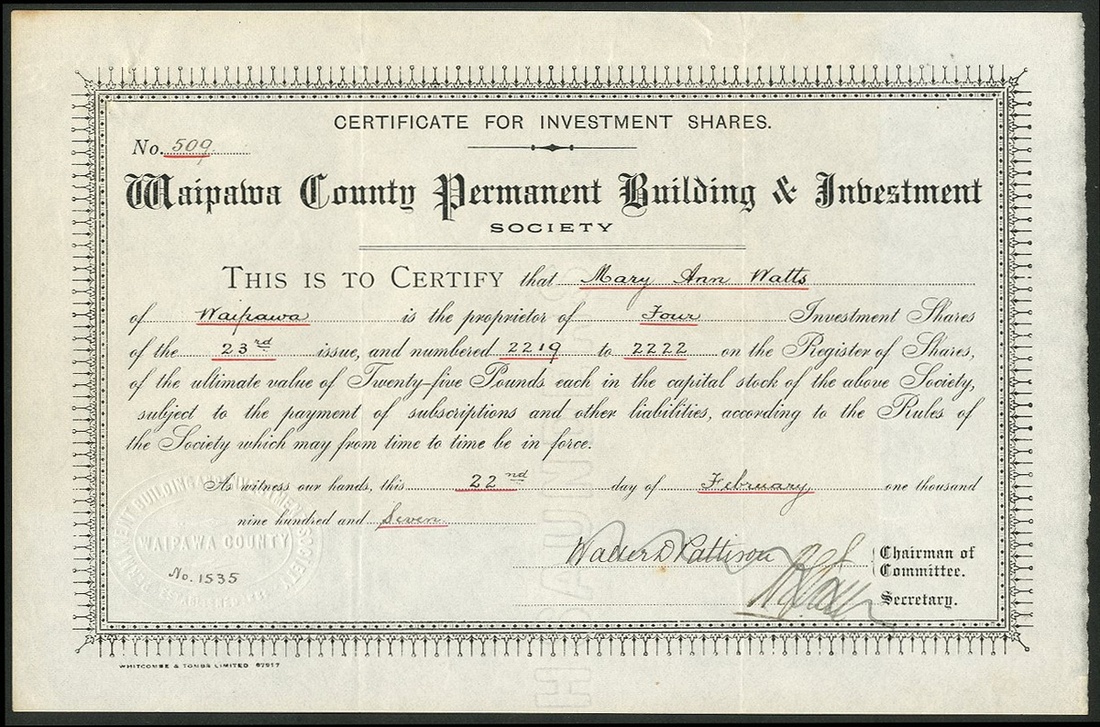 CERTIFICATE FOR INVESTMENT SHARES.
No. 509
Waipawa County Permanent Building & Investment
SOCIETY
THIS IS TO CERTIFY that Mary Ann Watts
of Waipawa is the proprietor of Four Investment Shares
of the 23rd issue, and numbered 2219 to 2222 on the Register of Shares,
of the ultimate value of Twenty-five Pounds each in the capital stock of the above Society,
subject to the payment of subscriptions and other liabilities, according to the Rules of
the Society which may from time to time be in force.
As witness our hands, this 22nd day of February one thousand
nine hundred and Seven
WAIPAWA COUNTY
No. 1535
Walter D Pattison
Chairman of
Committee.
Secretary.
WHITCOMBE & TOMBS LIMITED 67917